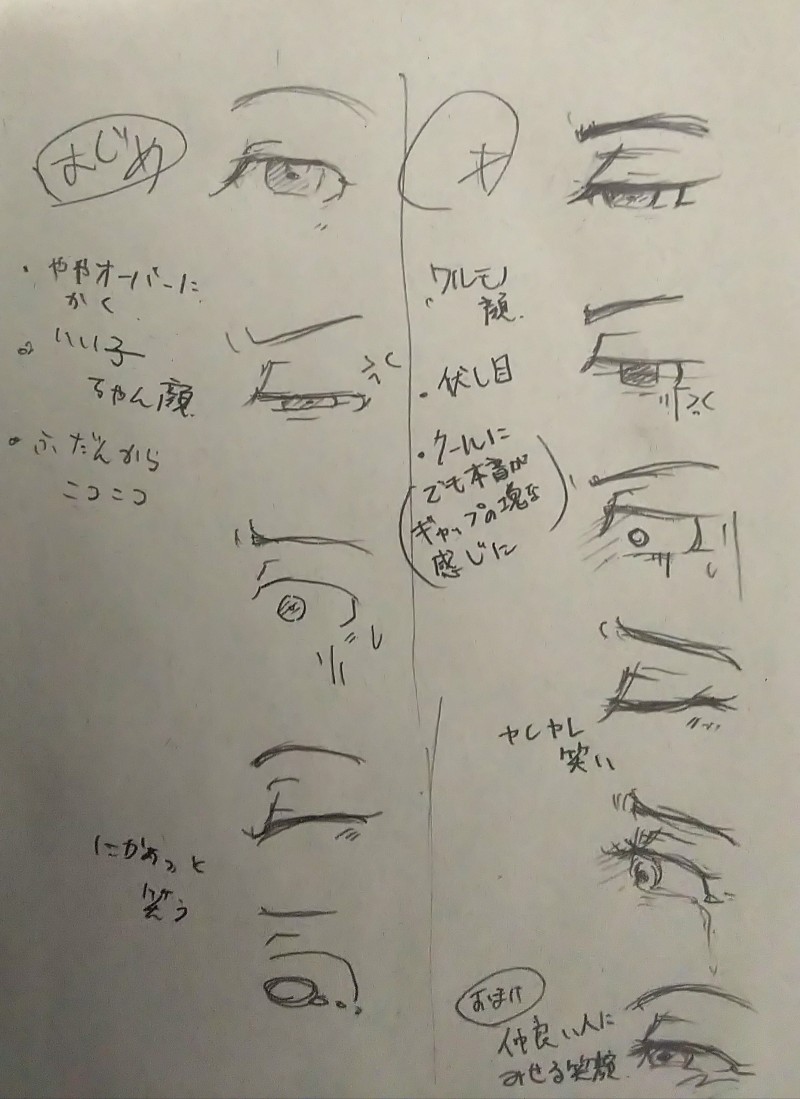 まじめ
・ややオーバーに
かく
・いい子
ちゃん顔
・ふだんから
ニコニコ
にかぁっと
笑う
ワルモノ
顔
・伏し目
・クールに
でも本音が
ギャップの塊な
感じに
笑い
おまけ
仲良い人に
みせる笑顔